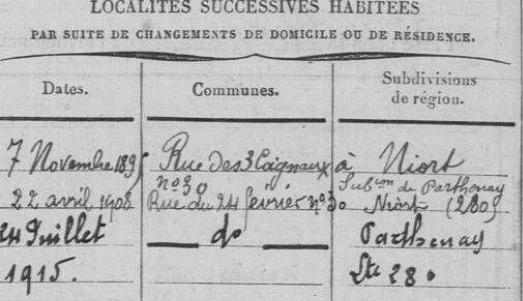 LOCALITÉS SUCCESSIVES HABITÉES
PAR SUITE DE CHANGEMENTS DE DOMICILE OU DE RÉSIDENCE.
Dates. Communes. Subdivisions
de région.
7 Novembre 1895 Rue Des 3 Coignaux à Niort
n° 30 Subon de Parthenay
22 avril 1908 Rue du 24 février n° 30 Niort (280)
24 Juillet do Parthenay
1915. 280